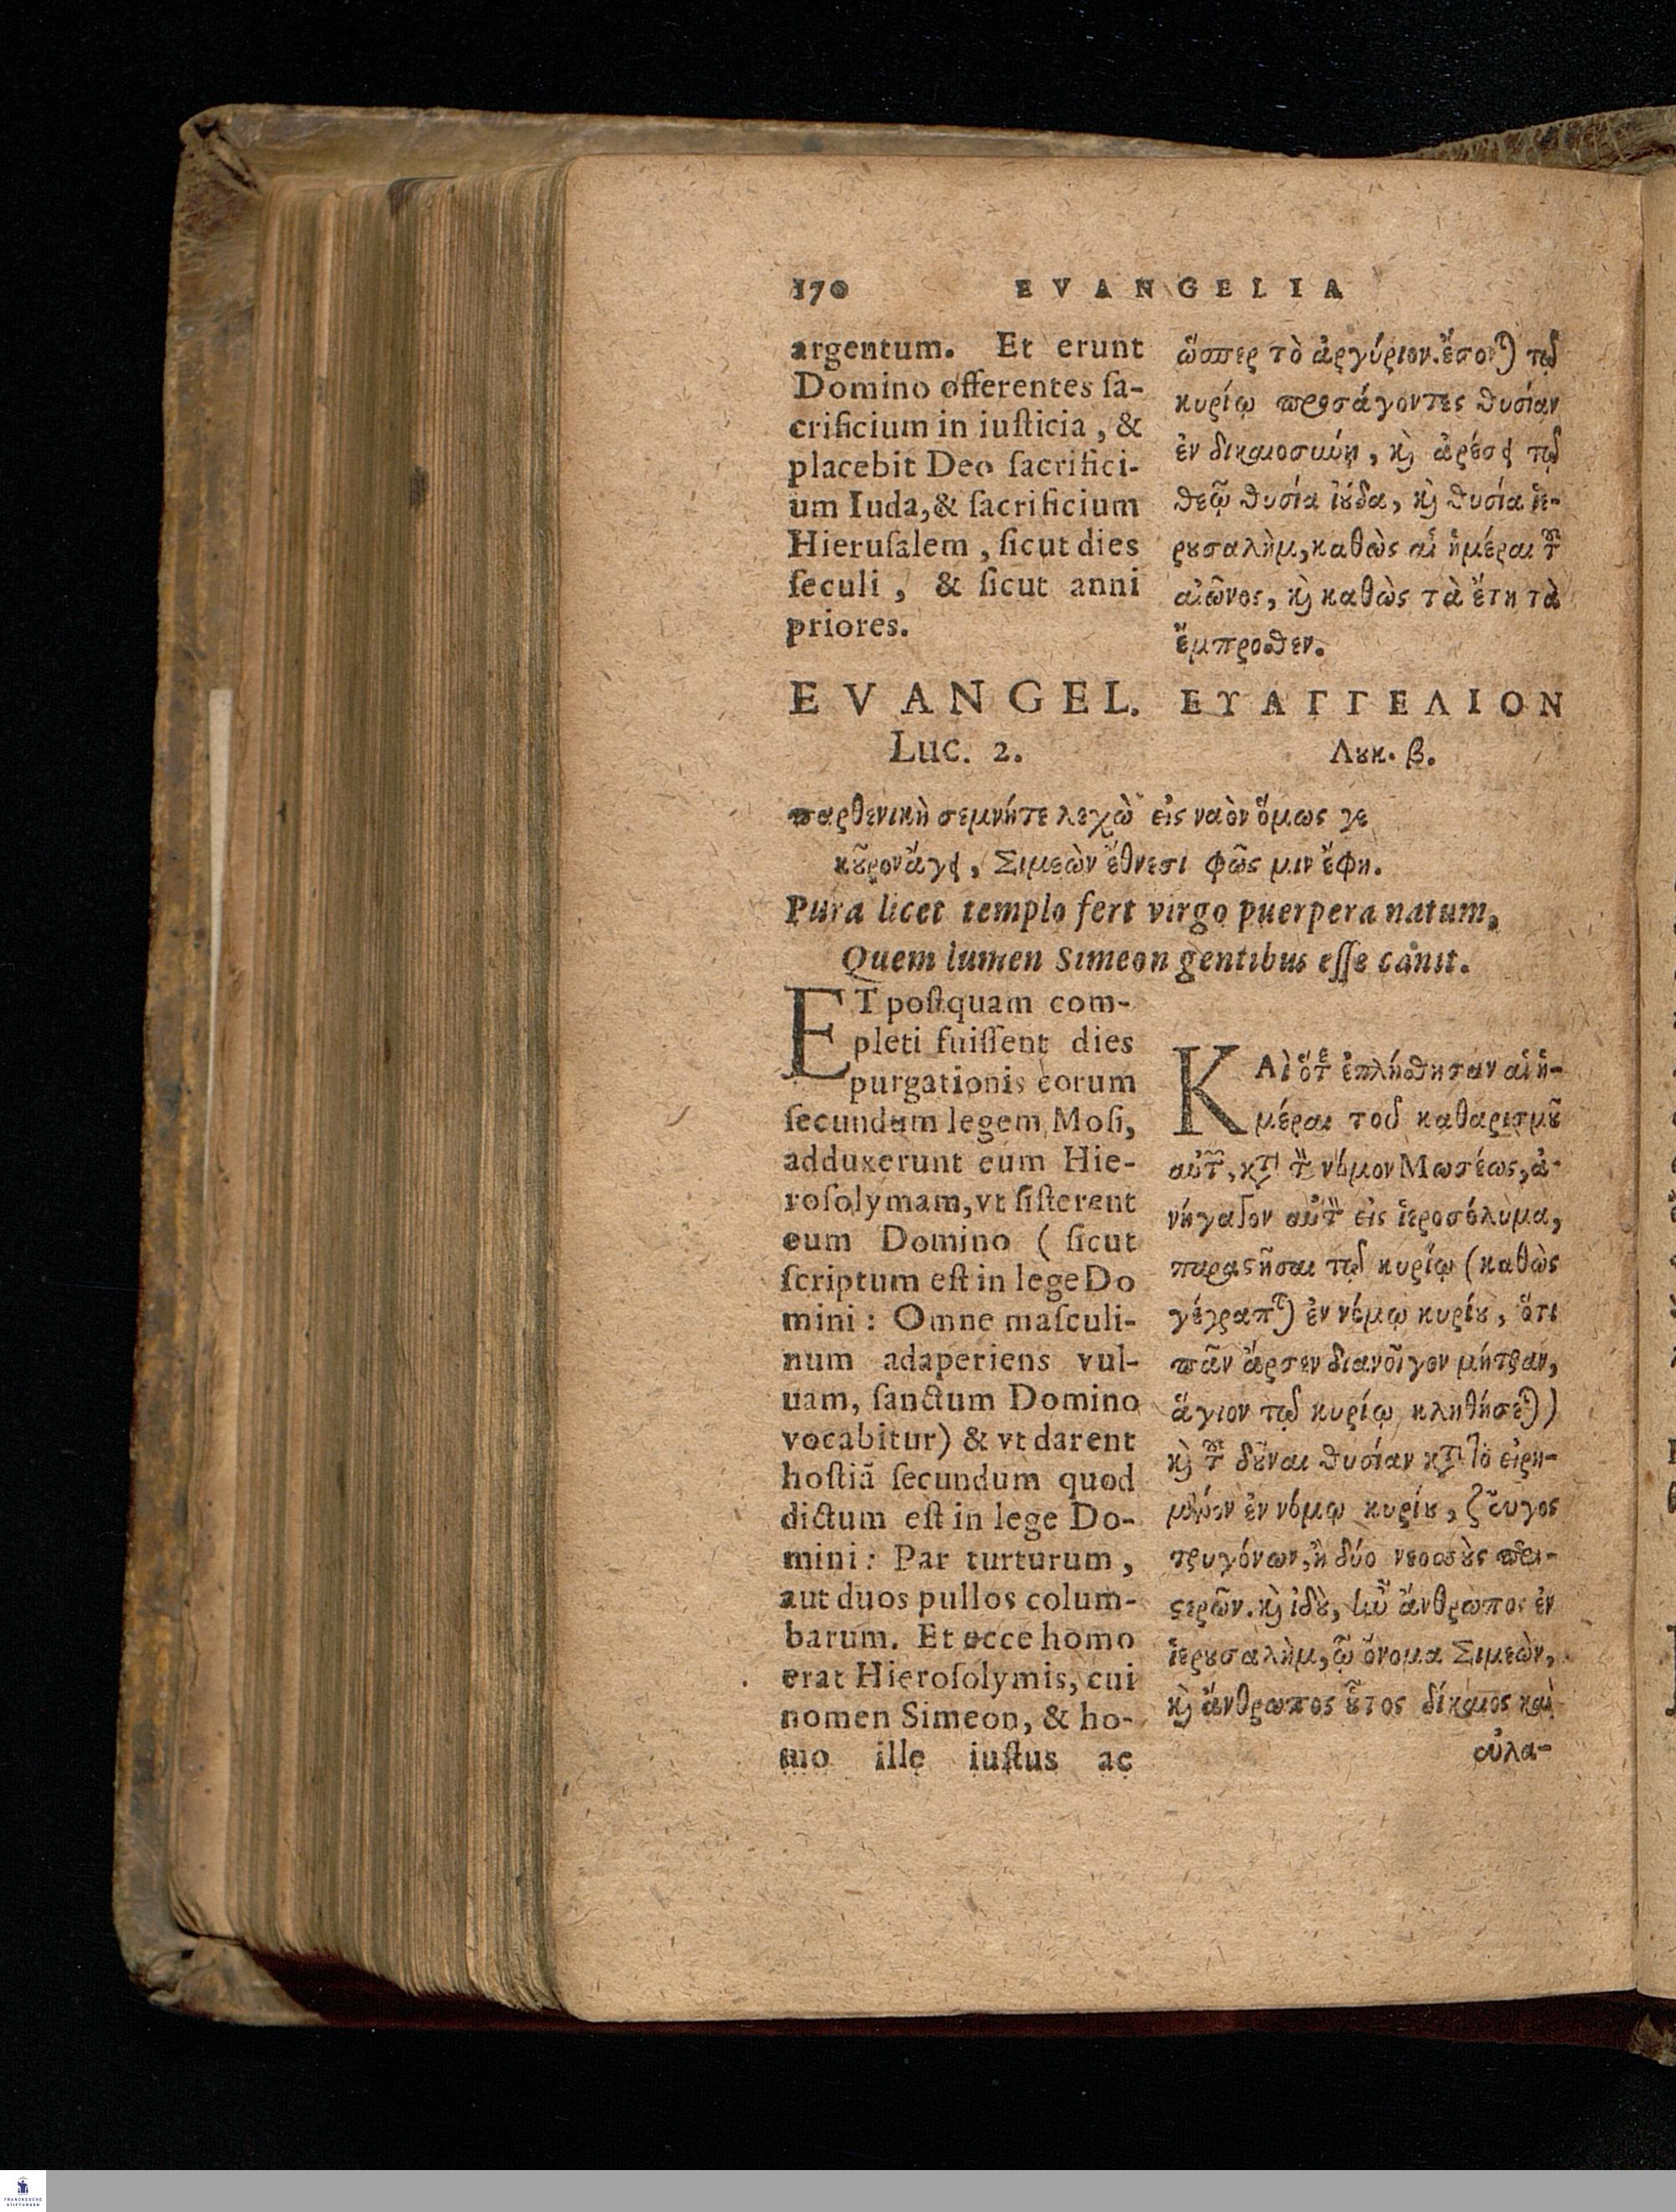 170 EVANGELIA
argentum. Et erunt
Domino offerentes ſa-
crificium in iuſticia, &
placebit Deo ſacrifici-
um Iuda, & ſacrificium
Hieruſalem, ſicut dies
ſeculi, & ſicut anni
priores.
ὥσπερ τὸ ἀργύριον. ἔσονται τῷ
κυρίῳ προσάγοντες θυσίαν
ἐν δικαιοσύνῃ, καὶ ἀρέσει τῷ
θεῷ θυσία ἰούδα, καὶ θυσία ἱε-
ρουσαλὴμ, καθὼς αἱ ἡμέραι τοῦ
αἰῶνος, καὶ καθὼς τὰ ἔτη τὰ
ἔμπροσθεν.
EVANGEL.
Luc. 2.
ΕΥΑΓΓΕΛΙΟΝ
Λουκ. β.
παρθενικὴ σεμνήτε λεχὼ εἰς ναὸν ὅμως γε
κοῦρον ἄγει, Σιμεὼν ἔθνεσι φῶς μιν ἔφη.
Pura licet templo fert virgo puerpera natum,
Quem lumen Simeon gentibus eſſe canit.
ET poſtquam com-
pleti fuiſſent dies
purgationis eorum
ſecundum legem Moſi,
adduxerunt eum Hie-
roſolymam, vt ſiſterent
eum Domino (ſicut
ſcriptum eſt in lege Do
mini: Omne maſculi-
num adaperiens vul-
uam, ſanctum Domino
vocabitur) & vt darent
hoſtiã ſecundum quod
dictum eſt in lege Do-
mini: Par turturum,
aut duos pullos colum-
barum. Et ecce homo
erat Hieroſolymis, cui
nomen Simeon, & ho-
mo ille iuſtus ac
ΚΑὶ ὅτε ἐπλήσθησαν αἱ ἡ-
μέραι τοῦ καθαρισμοῦ
αὐτῶν, κατὰ τὸν νόμον Μωσέως, ἀ-
νήγαγον αὐτὸν εἰς ἱεροσόλυμα,
παραστῆσαι τῷ κυρίῳ (καθὼς
γέγραπται ἐν νόμῳ κυρίου, ὅτι
πᾶν ἄρσεν διανοῖγον μήτραν,
ἅγιον τῷ κυρίῳ κληθήσεται)
καὶ τοῦ δοῦναι θυσίαν κατὰ τὸ εἰρη-
μένον ἐν νόμῳ κυρίου, ζεῦγος
τρυγόνων, ἢ δύο νεοσσοὺς περι-
στερῶν. καὶ ἰδοὺ, ἦν ἄνθρωπος ἐν
ἱερουσαλὴμ, ᾧ ὄνομα Σιμεὼν,
καὶ ἄνθρωπος οὗτος δίκαιος καὶ
εὐλα-
FRANCKESCHE
STIFTUNGEN